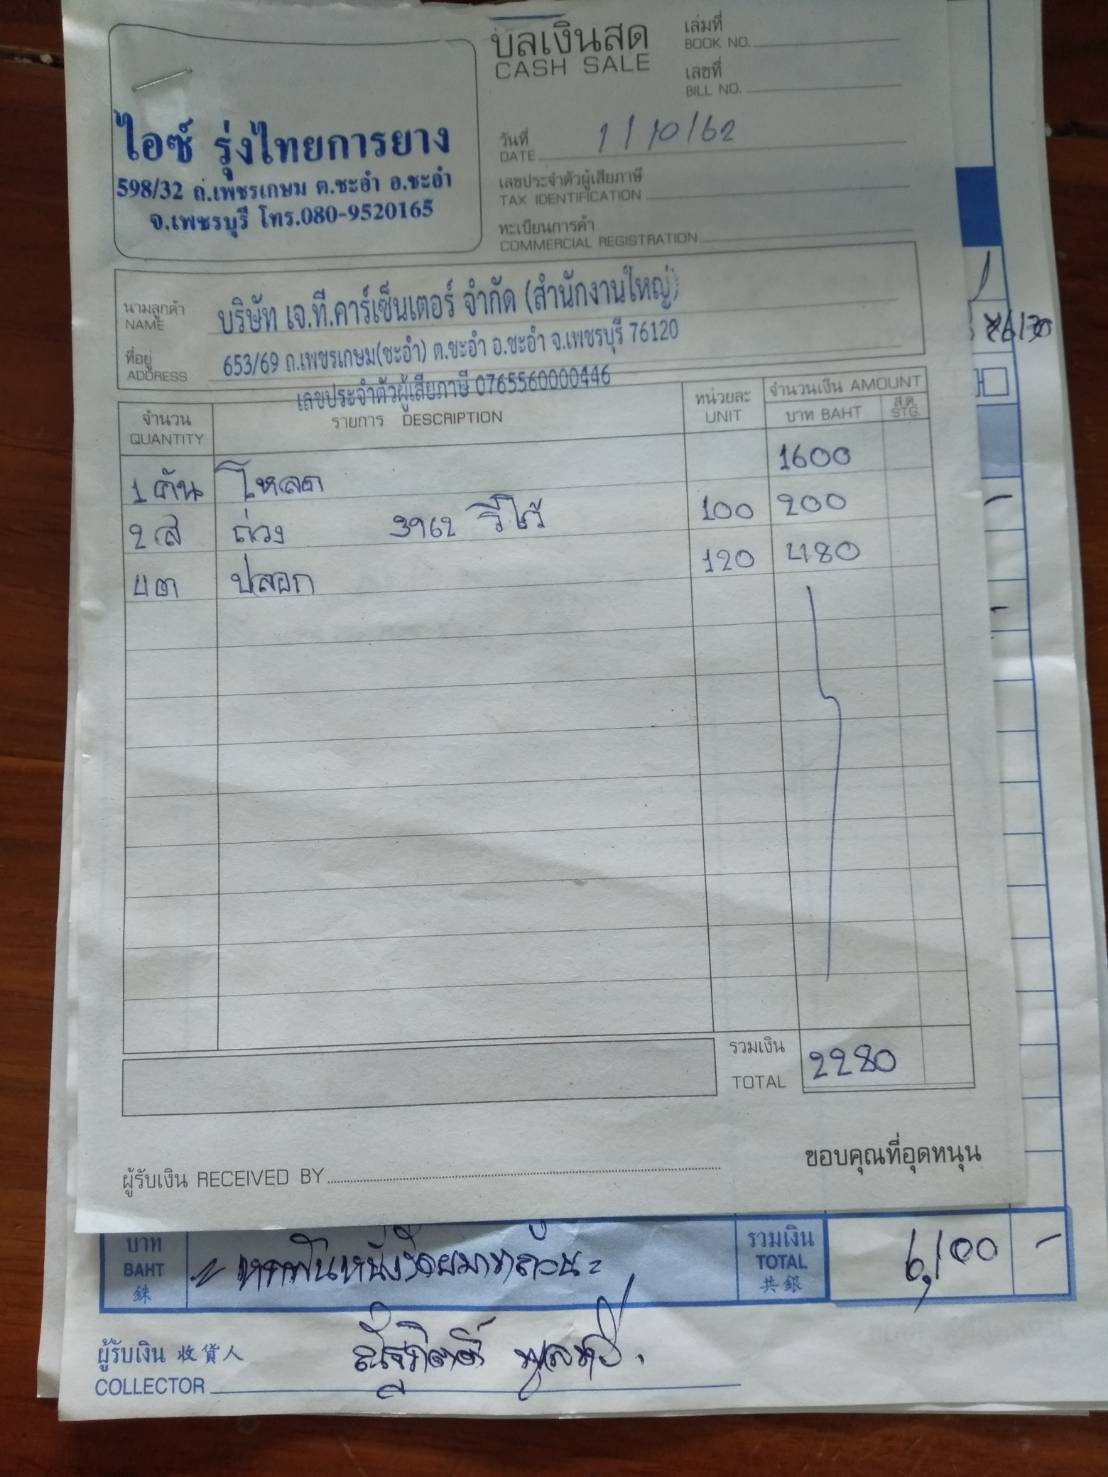 บิลเงินสด
CASH SALE
เล่มที่
BOOK NO.
เลขที่
BILL NO.
ไอซ์ รุ่งไทยการยาง
598/32 ถ.เพชรเกษม ต.ชะอำ อ.ชะอำ
จ.เพชรบุรี โทร.080-9520165
วันที่ 1/10/62
DATE
เลขประจำตัวผู้เสียภาษี
TAX IDENTIFICATION
ทะเบียนการค้า
COMMERCIAL REGISTRATION
นามลูกค้า
NAME
บริษัท เจ.ที.คาร์เซ็นเตอร์ จำกัด (สำนักงานใหญ่)
ที่อยู่
ADDRESS
653/69 ถ.เพชรเกษม(ชะอำ) ต.ชะอำ อ.ชะอำ จ.เพชรบุรี 76120
เลขประจำตัวผู้เสียภาษี 0765560000446
จำนวน
QUANTITY
รายการ DESCRIPTION
หน่วยละ
UNIT
จำนวนเงิน AMOUNT
บาท BAHT
ส.ต.
STG.
1 คัน โหลด 1600
2 ล ถ่วง 3962 วีโก้ 100 200
4 ต ปลอก 120 480
รวมเงิน
TOTAL
2280
ผู้รับเงิน RECEIVED BY
ขอบคุณที่อุดหนุน
บาท
BAHT
銖
หกพันหนึ่งร้อยบาทถ้วน
รวมเงิน
TOTAL
共銀
6,100 -
ผู้รับเงิน 收貨人
COLLECTOR